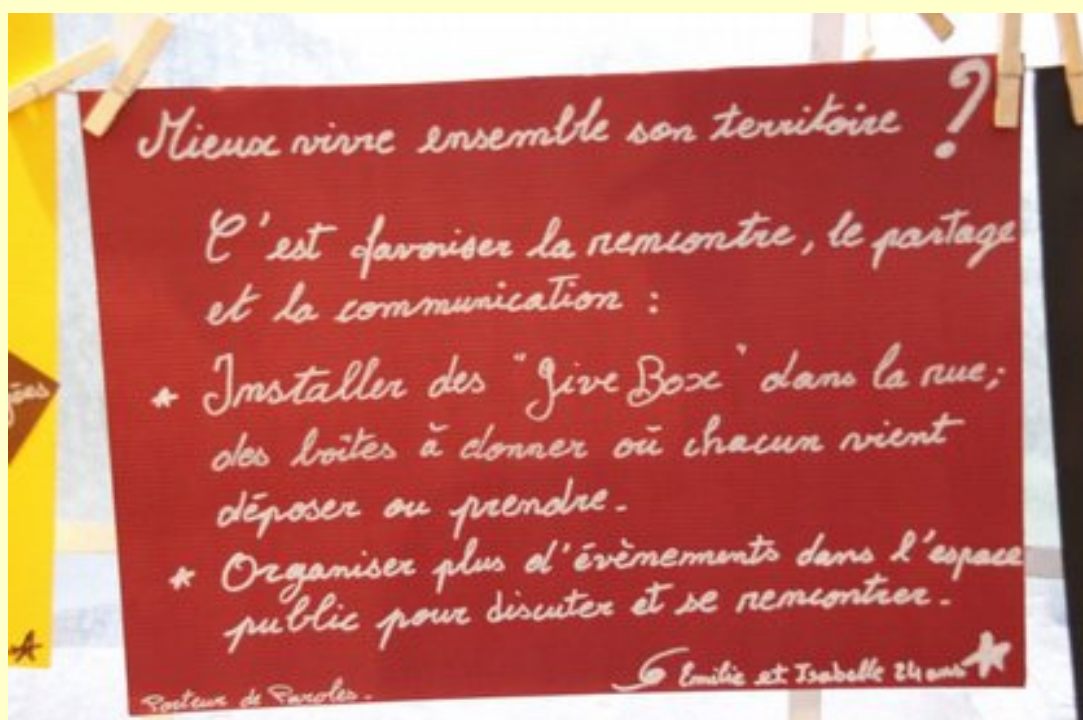 Mieux vivre ensemble son territoire ?
C'est favoriser la rencontre, le partage
et la communication :
* Installer des "Give Box" dans la rue ;
des boîtes à donner où chacun vient
déposer ou prendre.
* Organiser plus d'évènements dans l'espace
public pour discuter et se rencontrer.
Emilie et Isabelle 24 ans
Porteur de Paroles.